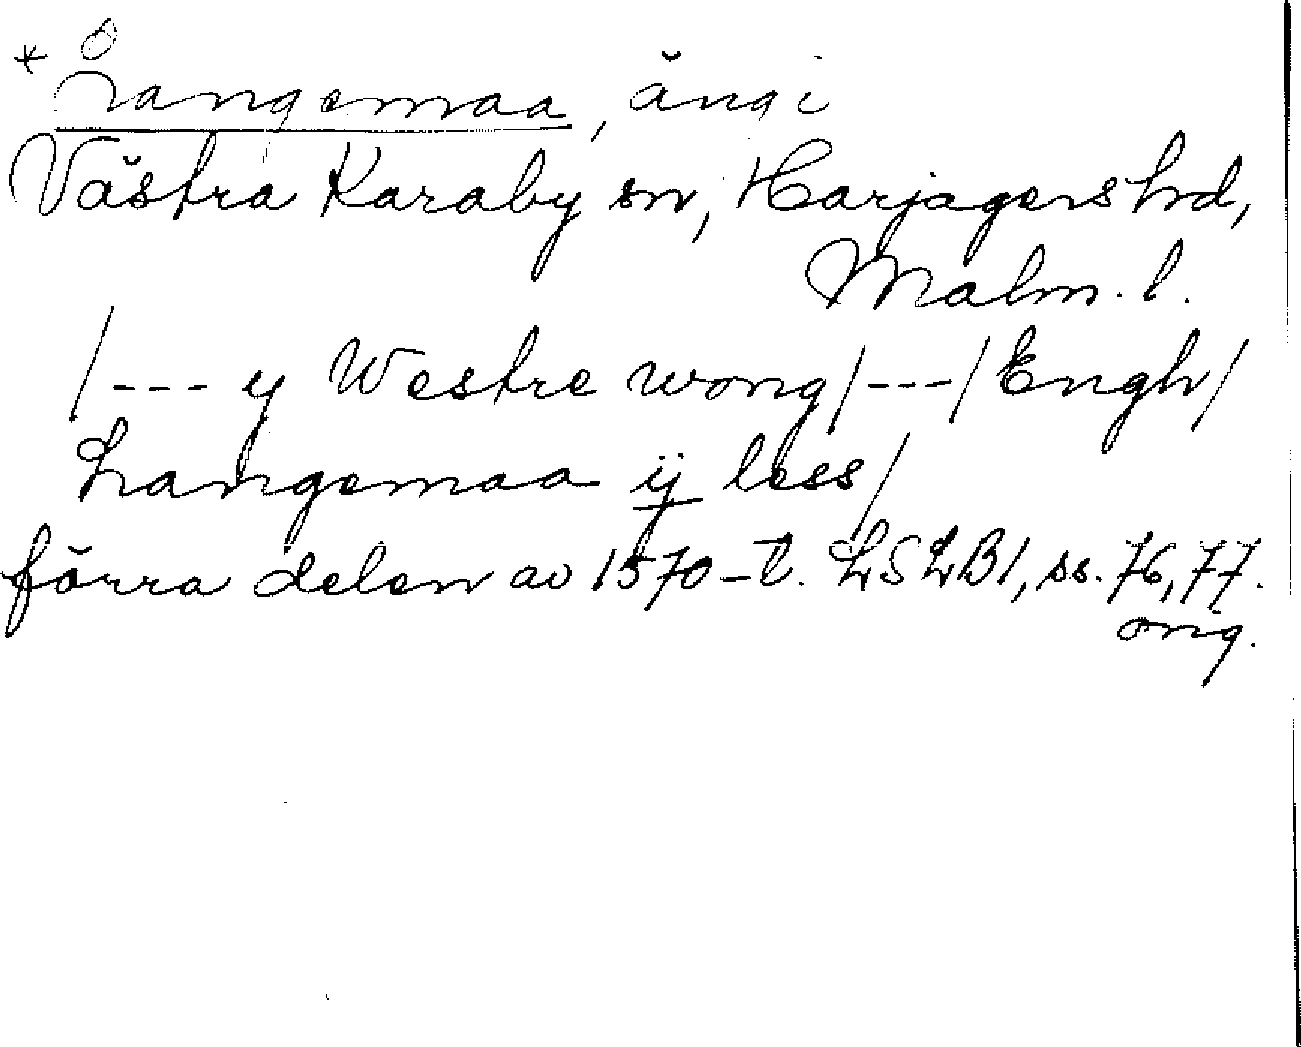 * Langemaa, äng i
Västra Karaby sn, Harjagers hd,
Malm. l.
/--- y Westre wong/---/Engh/
Langemaa ij less/
förra delen av 1570-t. LSLB1, ss. 76, 77.
orig.